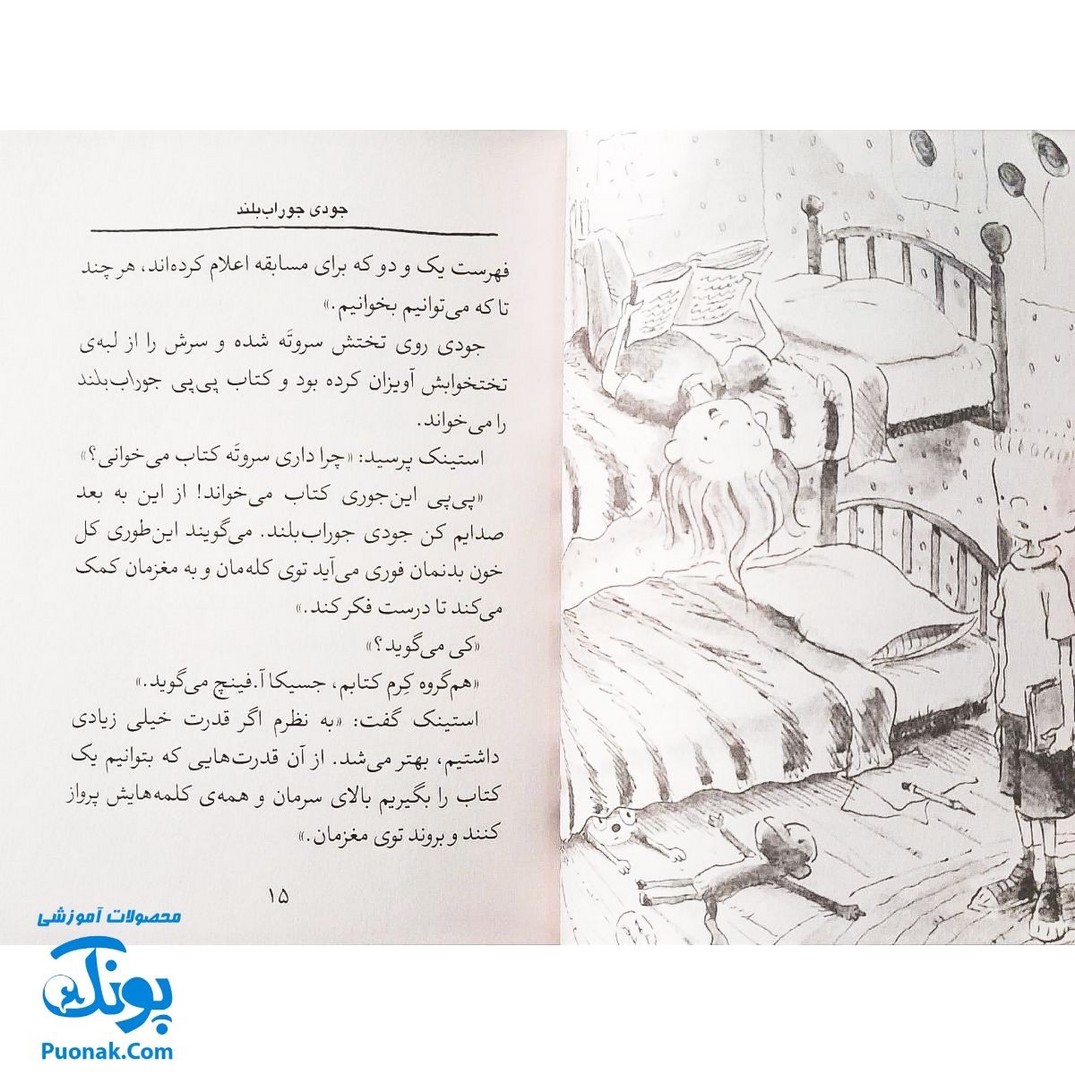 جودی جوراب‌بلند
فهرست یک و دو که برای مسابقه اعلام کرده‌اند، هر چند
تا که می‌توانیم بخوانیم.»
جودی روی تختش سروتَه شده و سرش را از لبه‌ی
تختخوابش آویزان کرده بود و کتاب پی‌پی جوراب‌بلند
را می‌خواند.
استینک پرسید: «چرا داری سروتَه کتاب می‌خوانی؟»
«پی‌پی این‌جوری کتاب می‌خواند! از این به بعد
صدایم کن جودی جوراب‌بلند. می‌گویند این‌طوری کل
خون بدنمان فوری می‌آید توی کله‌مان و به مغزمان کمک
می‌کند تا درست فکر کند.»
«کی می‌گوید؟»
«هم‌گروه کِرم کتابم، جسیکا آ.فینچ می‌گوید.»
استینک گفت: «به نظرم اگر قدرت خیلی زیادی
داشتیم، بهتر می‌شد. از آن قدرت‌هایی که بتوانیم یک
کتاب را بگیریم بالای سرمان و همه‌ی کلمه‌هایش پرواز
کنند و بروند توی مغزمان.»
۱۵
محصولات آموزشی
پونک
Puonak.Com